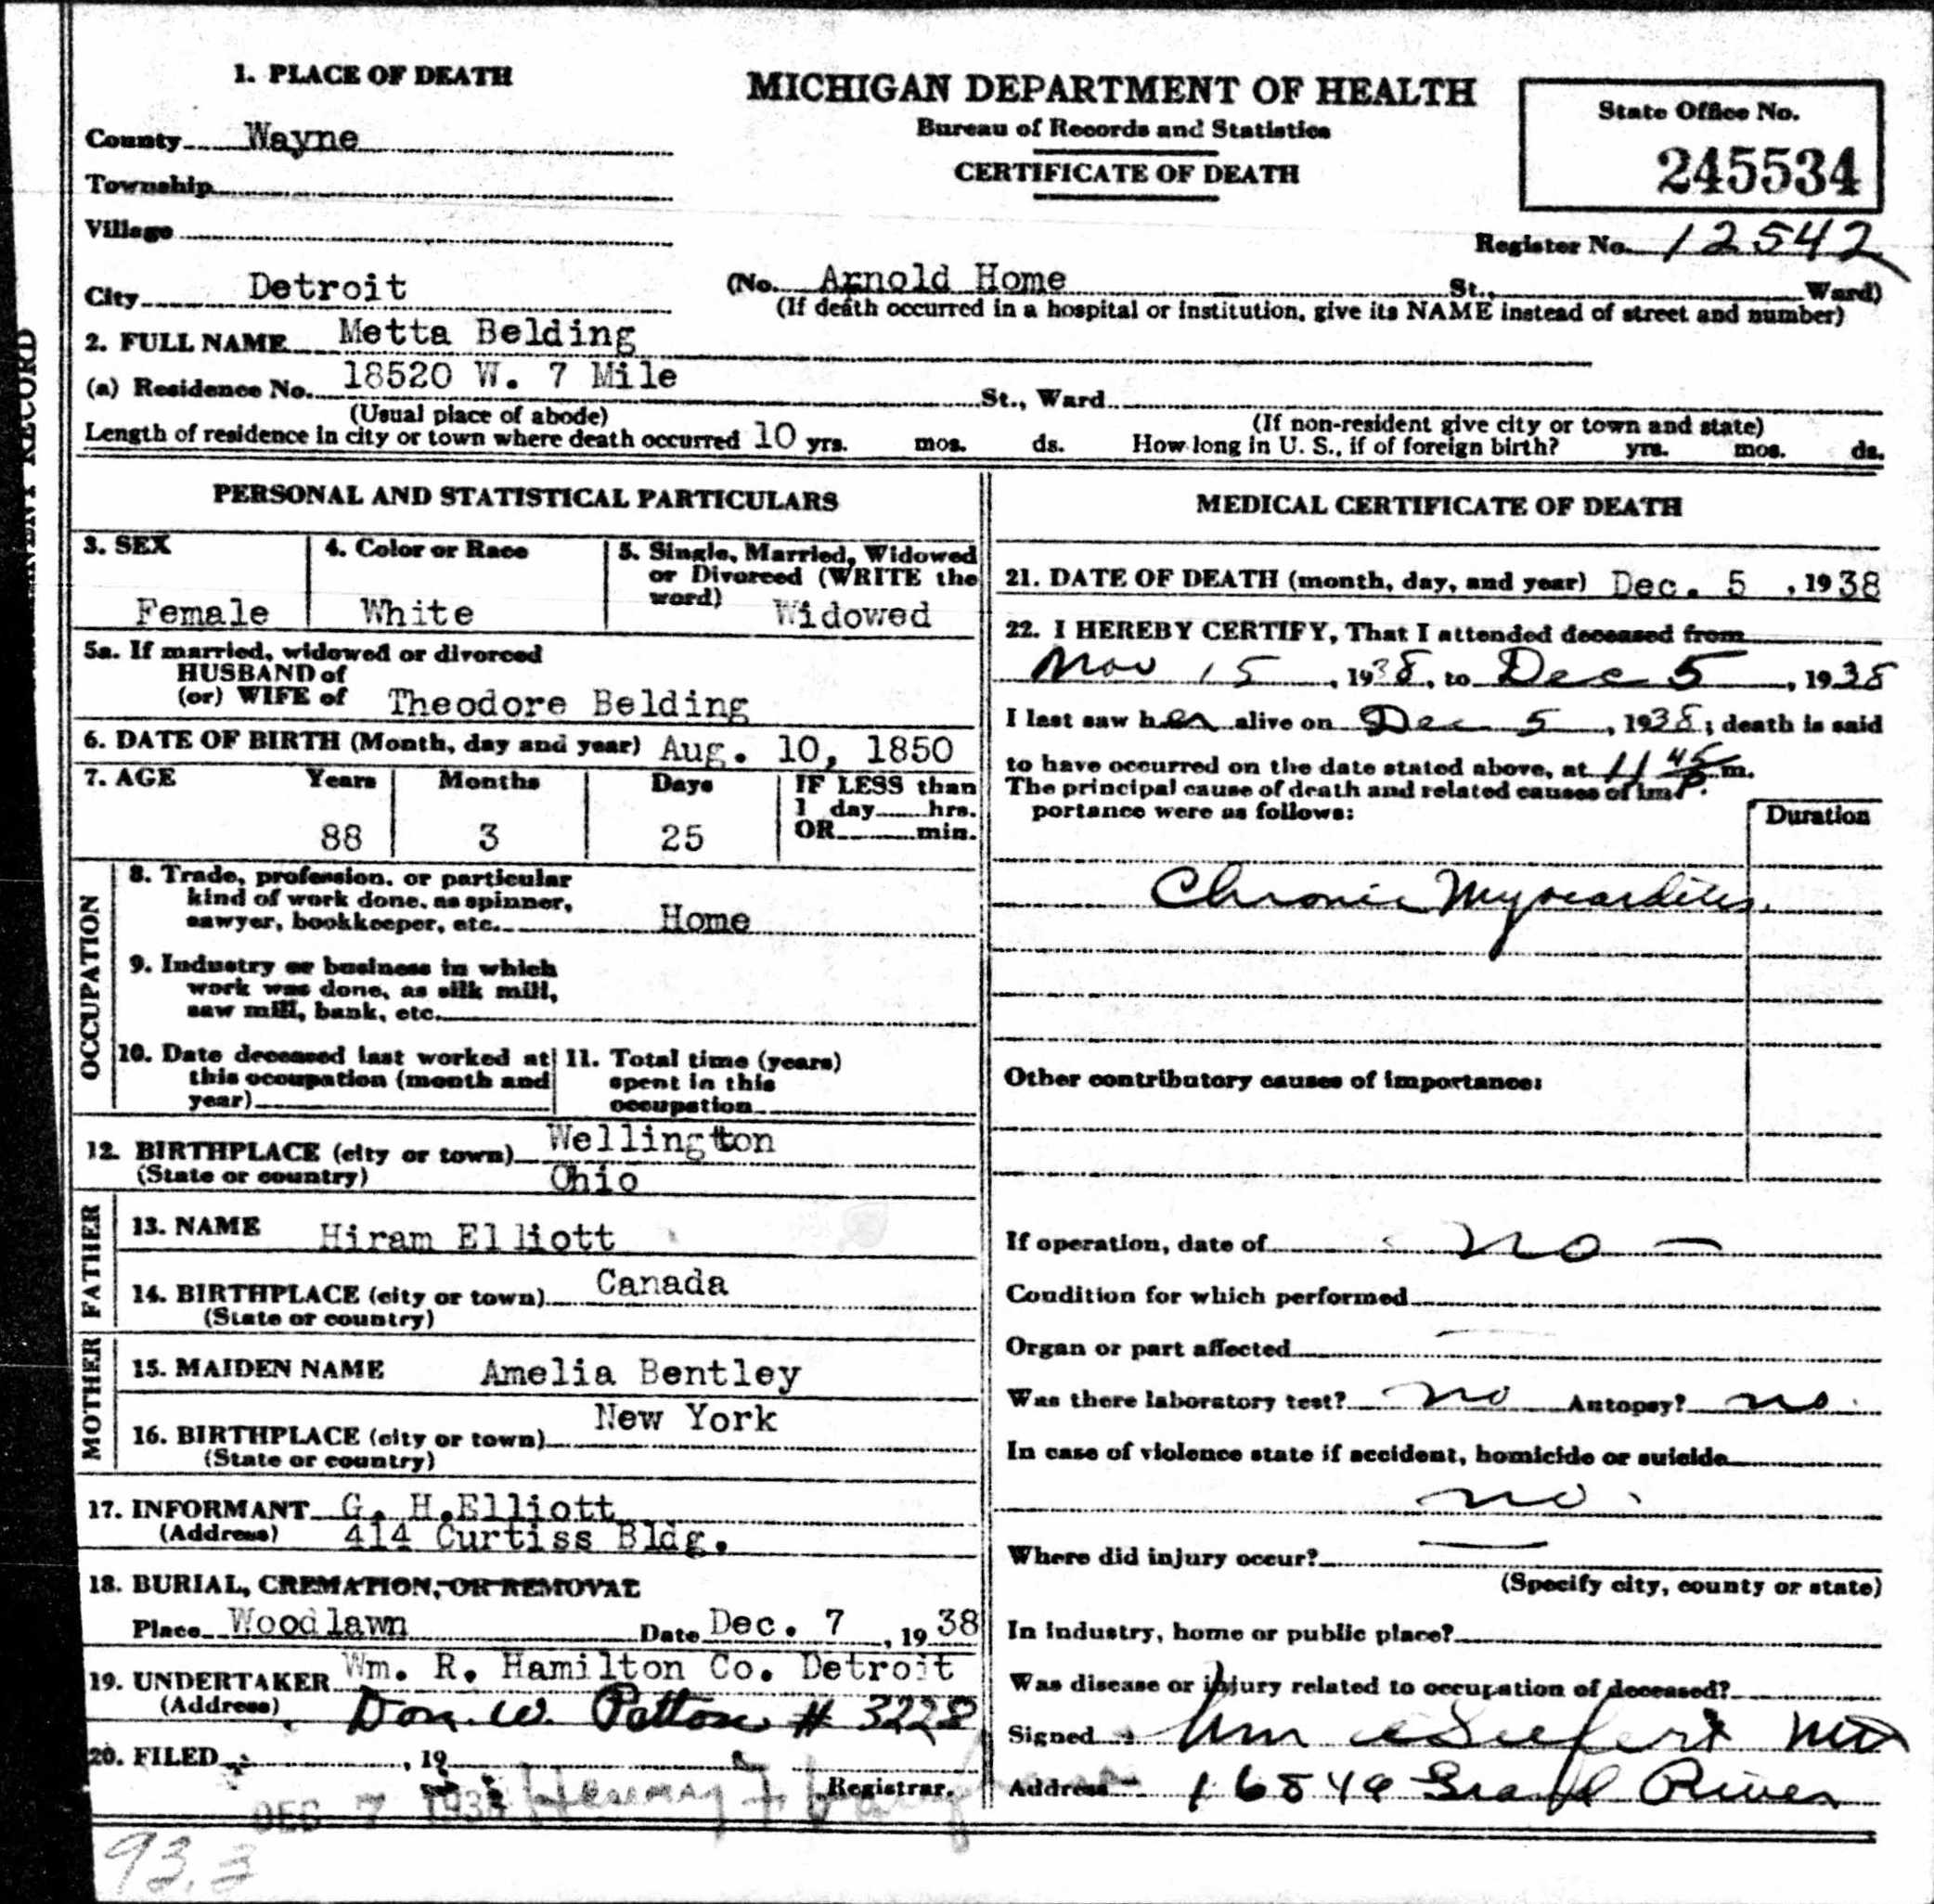 1. PLACE OF DEATH
MICHIGAN DEPARTMENT OF HEALTH
Bureau of Records and Statistics
CERTIFICATE OF DEATH
State Office No.
245534
County Wayne
Township
Village
Register No. 12542
City Detroit (No. Arnold Home St., Ward)
(If death occurred in a hospital or institution, give its NAME instead of street and number)
2. FULL NAME Metta Belding
(a) Residence No. 18520 W. 7 Mile St., Ward
(Usual place of abode) (If non-resident give city or town and state)
Length of residence in city or town where death occurred 10 yrs. mos. ds. How long in U. S., if of foreign birth? yrs. mos. ds.
PERMANENT RECORD
PERSONAL AND STATISTICAL PARTICULARS
3. SEX
Female
4. Color or Race
White
5. Single, Married, Widowed
or Divorced (WRITE the
word) Widowed
5a. If married, widowed or divorced
HUSBAND of
(or) WIFE of Theodore Belding
6. DATE OF BIRTH (Month, day and year) Aug. 10, 1850
7. AGE Years Months Days IF LESS than
1 day hrs.
88 3 25 OR min.
OCCUPATION
8. Trade, profession, or particular
kind of work done, as spinner,
sawyer, bookkeeper, etc. Home
9. Industry or business in which
work was done, as silk mill,
saw mill, bank, etc.
10. Date deceased last worked at
this occupation (month and
year)
11. Total time (years)
spent in this
occupation
12. BIRTHPLACE (city or town) Wellington
(State or country) Ohio
FATHER
13. NAME Hiram Elliott
14. BIRTHPLACE (city or town) Canada
(State or country)
MOTHER
15. MAIDEN NAME Amelia Bentley
16. BIRTHPLACE (city or town) New York
(State or country)
17. INFORMANT G. H. Elliott
(Address) 414 Curtiss Bldg.
18. BURIAL, CREMATION, OR REMOVAL
Place Woodlawn Date Dec. 7, 1938
19. UNDERTAKER Wm. R. Hamilton Co. Detroit
(Address) Don. W. Patton # 3228
20. FILED , 19
Registrar.
DEC 7 1938 Henry F.
93.3
MEDICAL CERTIFICATE OF DEATH
21. DATE OF DEATH (month, day, and year) Dec. 5, 1938
22. I HEREBY CERTIFY, That I attended deceased from
Nov 15, 1938, to Dec 5, 1938
I last saw her alive on Dec 5, 1938; death is said
to have occurred on the date stated above, at 11 45 P. m.
The principal cause of death and related causes of im-
portance were as follows:
Duration
Chronic Myocarditis.
Other contributory causes of importance:
If operation, date of no —
Condition for which performed
Organ or part affected —
Was there laboratory test? no Autopsy? no.
In case of violence state if accident, homicide or suicide
no.
Where did injury occur? —
(Specify city, county or state)
In industry, home or public place?
Was disease or injury related to occupation of deceased?
Signed Wm Seefert MD
Address 16849 Grand River